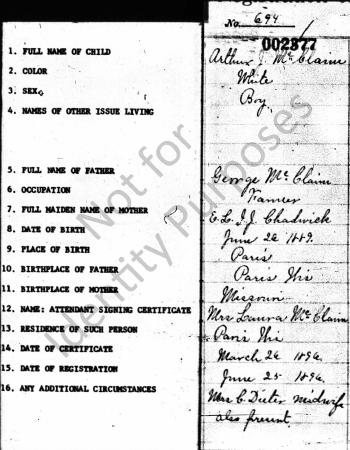 No. 694
002377
1. FULL NAME OF CHILD Arthur J. McClaim
2. COLOR White
3. SEX. Boy
4. NAMES OF OTHER ISSUE LIVING
5. FULL NAME OF FATHER George McClaim
6. OCCUPATION Farmer
7. FULL MAIDEN NAME OF MOTHER E. L. J. J. Chadwick
8. DATE OF BIRTH June 26 1889.
9. PLACE OF BIRTH Paris
10. BIRTHPLACE OF FATHER Paris Wis
11. BIRTHPLACE OF MOTHER Missouri
12. NAME: ATTENDANT SIGNING CERTIFICATE Mrs Laura McClaim
13. RESIDENCE OF SUCH PERSON Paris Wis
14. DATE OF CERTIFICATE March 26 1896.
15. DATE OF REGISTRATION June 25 1896.
16. ANY ADDITIONAL CIRCUMSTANCES Mrs C. Dieter midwife
also present.
Not for
Identity Purposes